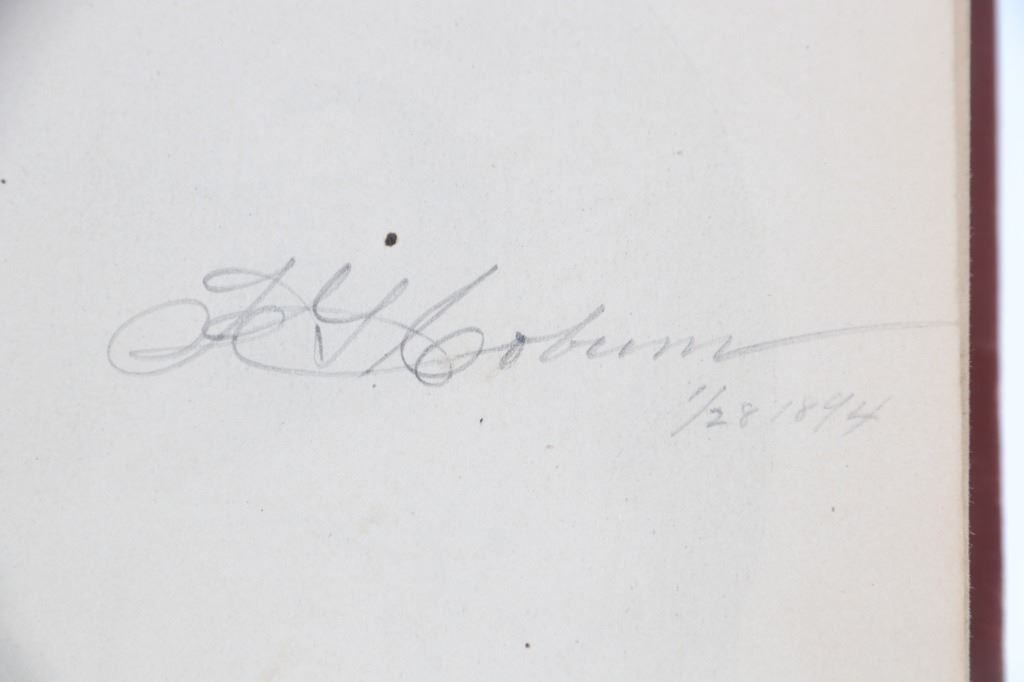 F Y Coburn
1/28 1894